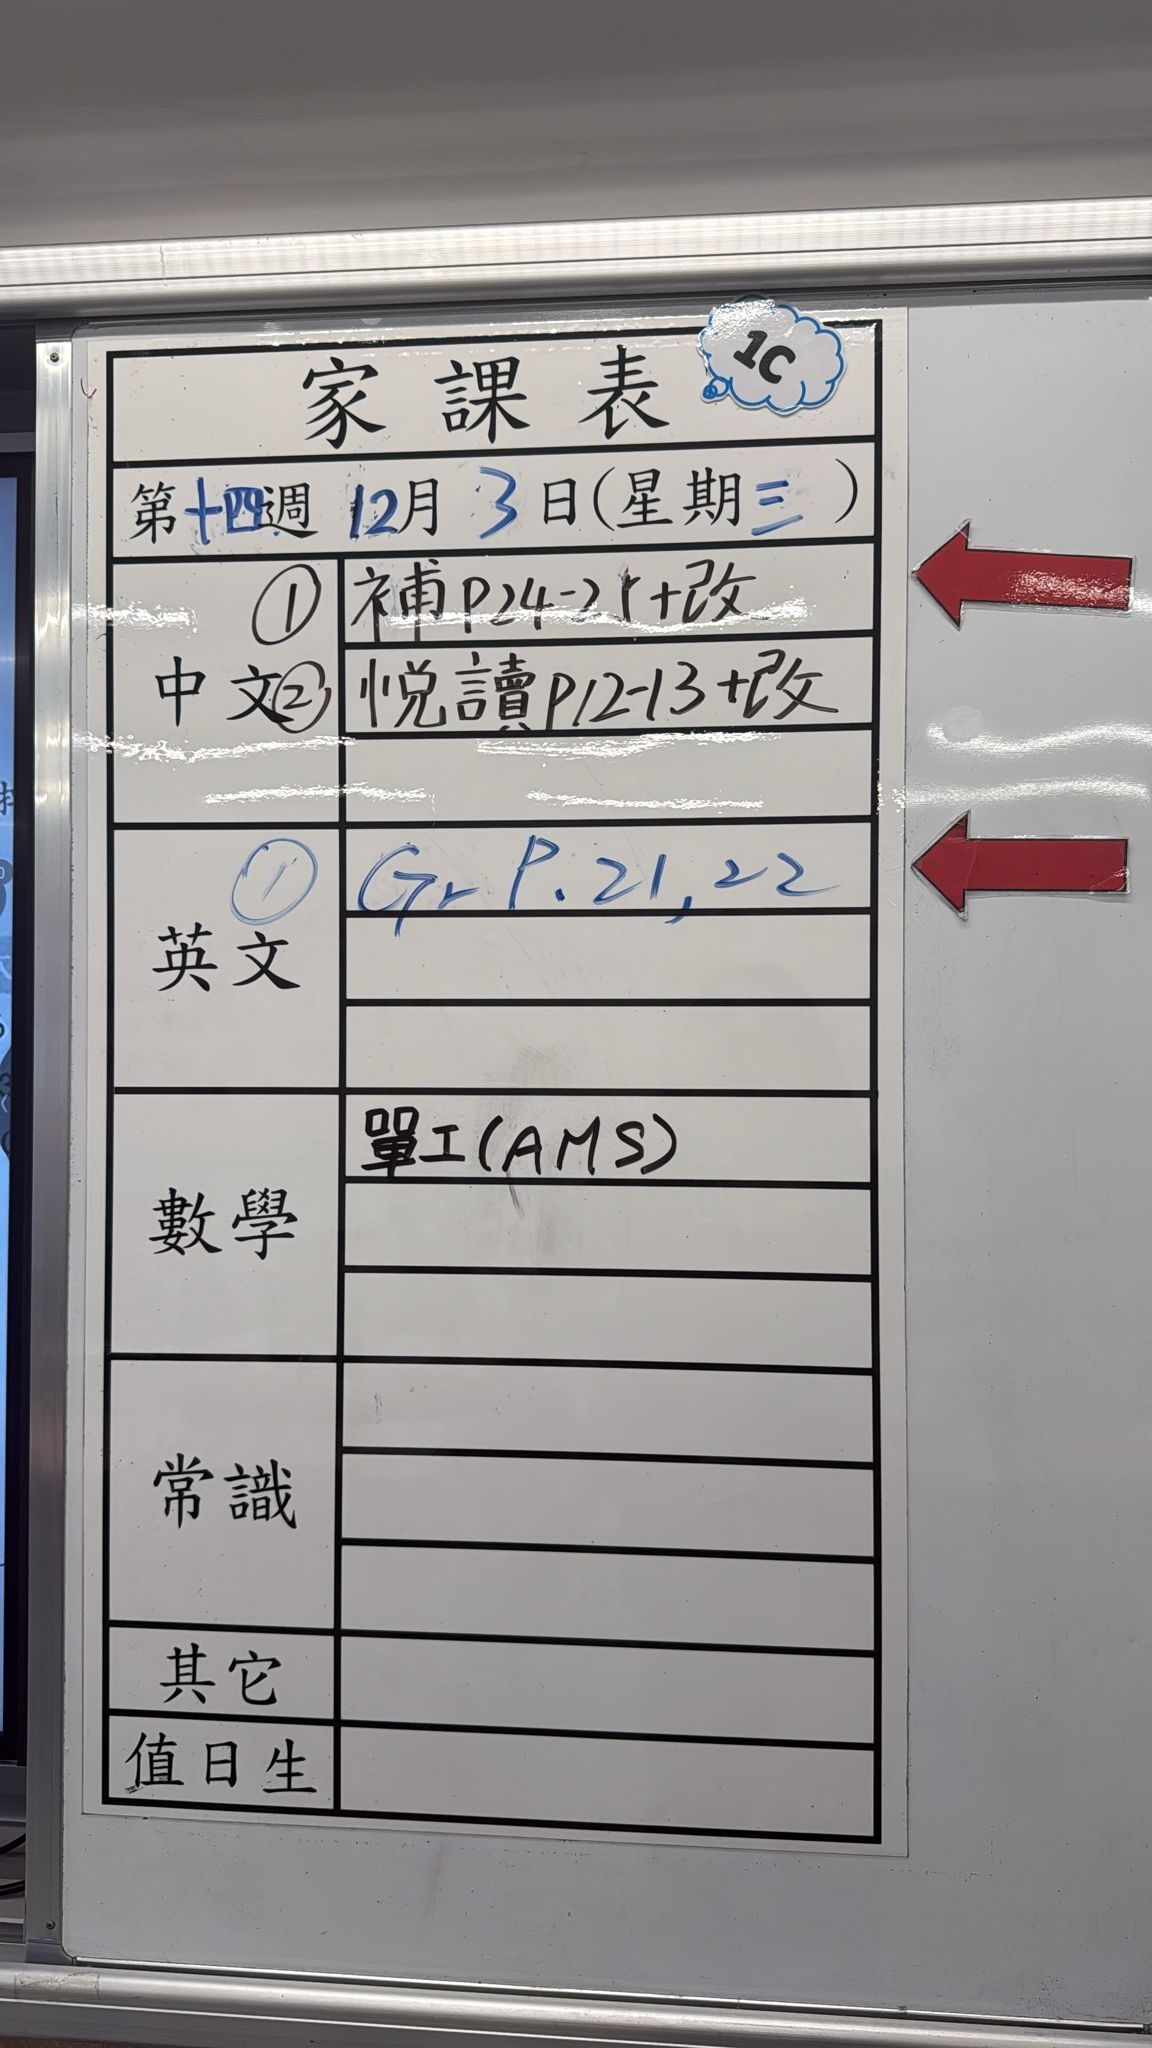 1C
家課表
第十四週 12月 3日(星期三)
中文
① 補P24-25+改
② 悦讀P12-13+改
英文
① Gr P.21,22
數學
單工(AMS)
常識
其它
值日生